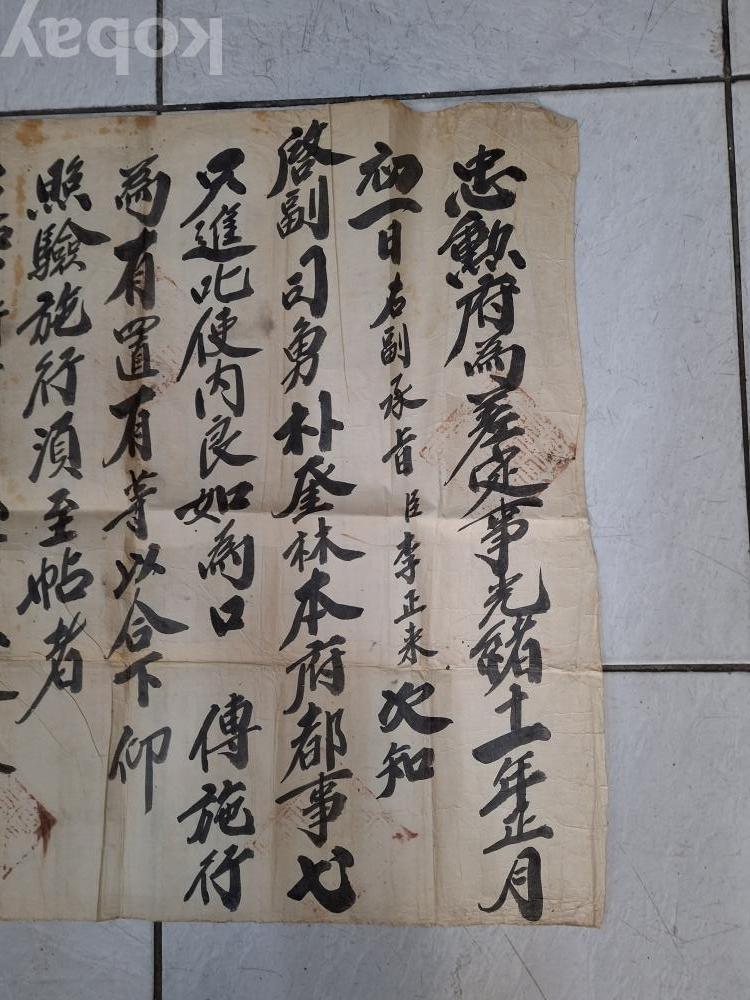 忠勲府為差定事光緒十一年正月
初一日右副承旨臣李正来次知
啓副司勇朴奎林本府都事
只進叱使內良如為口傳施行
為有置有等以合下仰
照驗施行須至帖者
kobay